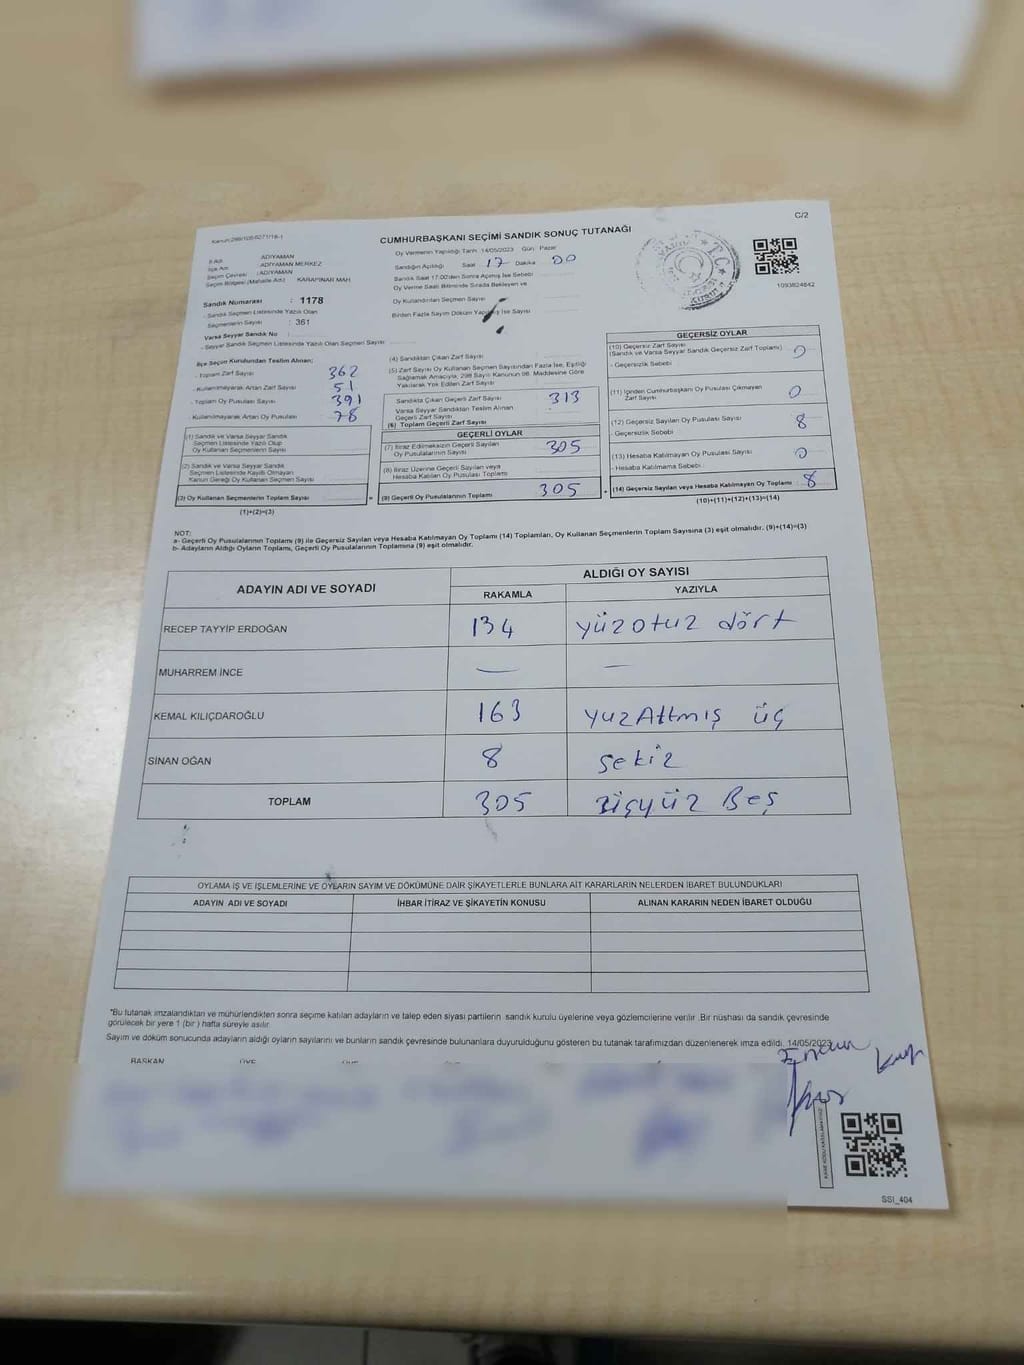 C/2
Kanun:298/105:6271/18-1
CUMHURBAŞKANI SEÇİMİ SANDIK SONUÇ TUTANAĞI
İl Adı ADIYAMAN
İlçe Adı ADIYAMAN MERKEZ
Seçim Çevresi : ADIYAMAN
Seçim Bölgesi (Mahalle Adı) KARAPINAR MAH
Oy Vermenin Yapıldığı Tarih :14/05/2023 Gün: Pazar
Sandığın Açıldığı Saat 17 Dakika 00
Sandık Saat 17:00'den Sonra Açılmış İse Sebebi
Oy Verme Saati Bitiminde Sırada Bekleyen ve
Oy Kullandırılan Seçmen Sayısı
Birden Fazla Sayım Döküm Yapılmış İse Sayısı
1093824842
Sandık Numarası : 1178
- Sandık Seçmen Listesinde Yazılı Olan
Seçmenlerin Sayısı : 361
Varsa Seyyar Sandık No
- Seyyar Sandık Seçmen Listesinde Yazılı Olan Seçmen Sayısı
İlçe Seçim Kurulundan Teslim Alınan;
- Toplam Zarf Sayısı 362
- Kullanılmayarak Artan Zarf Sayısı 51
- Toplam Oy Pusulası Sayısı 391
- Kullanılmayarak Artan Oy Pusulası 78
(1) Sandık ve Varsa Seyyar Sandık
Seçmen Listesinde Yazılı Olup
Oy Kullanan Seçmenlerin Sayısı
(2) Sandık ve Varsa Seyyar Sandık
Seçmen Listesinde Kayıtlı Olmayan
Kanun Gereği Oy Kullanan Seçmen Sayısı
(3) Oy Kullanan Seçmenlerin Toplam Sayısı =
(1)+(2)=(3)
(4) Sandıktan Çıkan Zarf Sayısı
(5) Zarf Sayısı Oy Kullanan Seçmen Sayısından Fazla İse, Eşitliği
Sağlamak Amacıyla, 298 Sayılı Kanunun 98. Maddesine Göre
Yakılarak Yok Edilen Zarf Sayısı
Sandıkta Çıkan Geçerli Zarf Sayısı 313
Varsa Seyyar Sandıktan Teslim Alınan
Geçerli Zarf Sayısı
(6) Toplam Geçerli Zarf Sayısı
GEÇERLİ OYLAR
(7) İtiraz Edilmeksizin Geçerli Sayılan
Oy Pusulalarının Sayısı 305
(8) İtiraz Üzerine Geçerli Sayılan veya
Hesaba Katılan Oy Pusulası Toplamı
(9) Geçerli Oy Pusulalarının Toplamı 305 +
GEÇERSİZ OYLAR
(10) Geçersiz Zarf Sayısı
(Sandık ve Varsa Seyyar Sandık Geçersiz Zarf Toplamı) 0
- Geçersizlik Sebebi
(11) İçinden Cumhurbaşkanı Oy Pusulası Çıkmayan
Zarf Sayısı 0
(12) Geçersiz Sayılan Oy Pusulası Sayısı 8
- Geçersizlik Sebebi
(13) Hesaba Katılmayan Oy Pusulası Sayısı 0
- Hesaba Katılmama Sebebi
(14) Geçersiz Sayılan veya Hesaba Katılmayan Oy Toplamı 8
(10)+(11)+(12)+(13)=(14)
NOT:
a- Geçerli Oy Pusulalarının Toplamı (9) ile Geçersiz Sayılan veya Hesaba Katılmayan Oy Toplamı (14) Toplamları, Oy Kullanan Seçmenlerin Toplam Sayısına (3) eşit olmalıdır. (9)+(14)=(3)
b- Adayların Aldığı Oyların Toplamı, Geçerli Oy Pusulalarının Toplamına (9) eşit olmalıdır.
ADAYIN ADI VE SOYADI ALDIĞI OY SAYISI
RAKAMLA YAZIYLA
RECEP TAYYİP ERDOĞAN 134 yüzotuz dört
MUHARREM İNCE — —
KEMAL KILIÇDAROĞLU 163 yuzAtmış üç
SİNAN OĞAN 8 sekiz
TOPLAM 305 Beş
OYLAMA İŞ VE İŞLEMLERİNE VE OYLARIN SAYIM VE DÖKÜMÜNE DAİR ŞİKAYETLERLE BUNLARA AİT KARARLARIN NELERDEN İBARET BULUNDUKLARI
ADAYIN ADI VE SOYADI İHBAR İTİRAZ VE ŞİKAYETİN KONUSU ALINAN KARARIN NEDEN İBARET OLDUĞU
*Bu tutanak imzalandıktan ve mühürlendikten sonra seçime katılan adayların ve talep eden siyasi partilerin sandık kurulu üyelerine veya gözlemcilerine verilir .Bir nüshası da sandık çevresinde
görülecek bir yere 1 (bir ) hafta süreyle asılır.
Sayım ve döküm sonucunda adayların aldığı oyların sayılarını ve bunların sandık çevresinde bulunanlara duyurulduğunu gösteren bu tutanak tarafımızdan düzenlenerek imza edildi. 14/05/2023
BAŞKAN ÜYE ÜYE
SSI_404